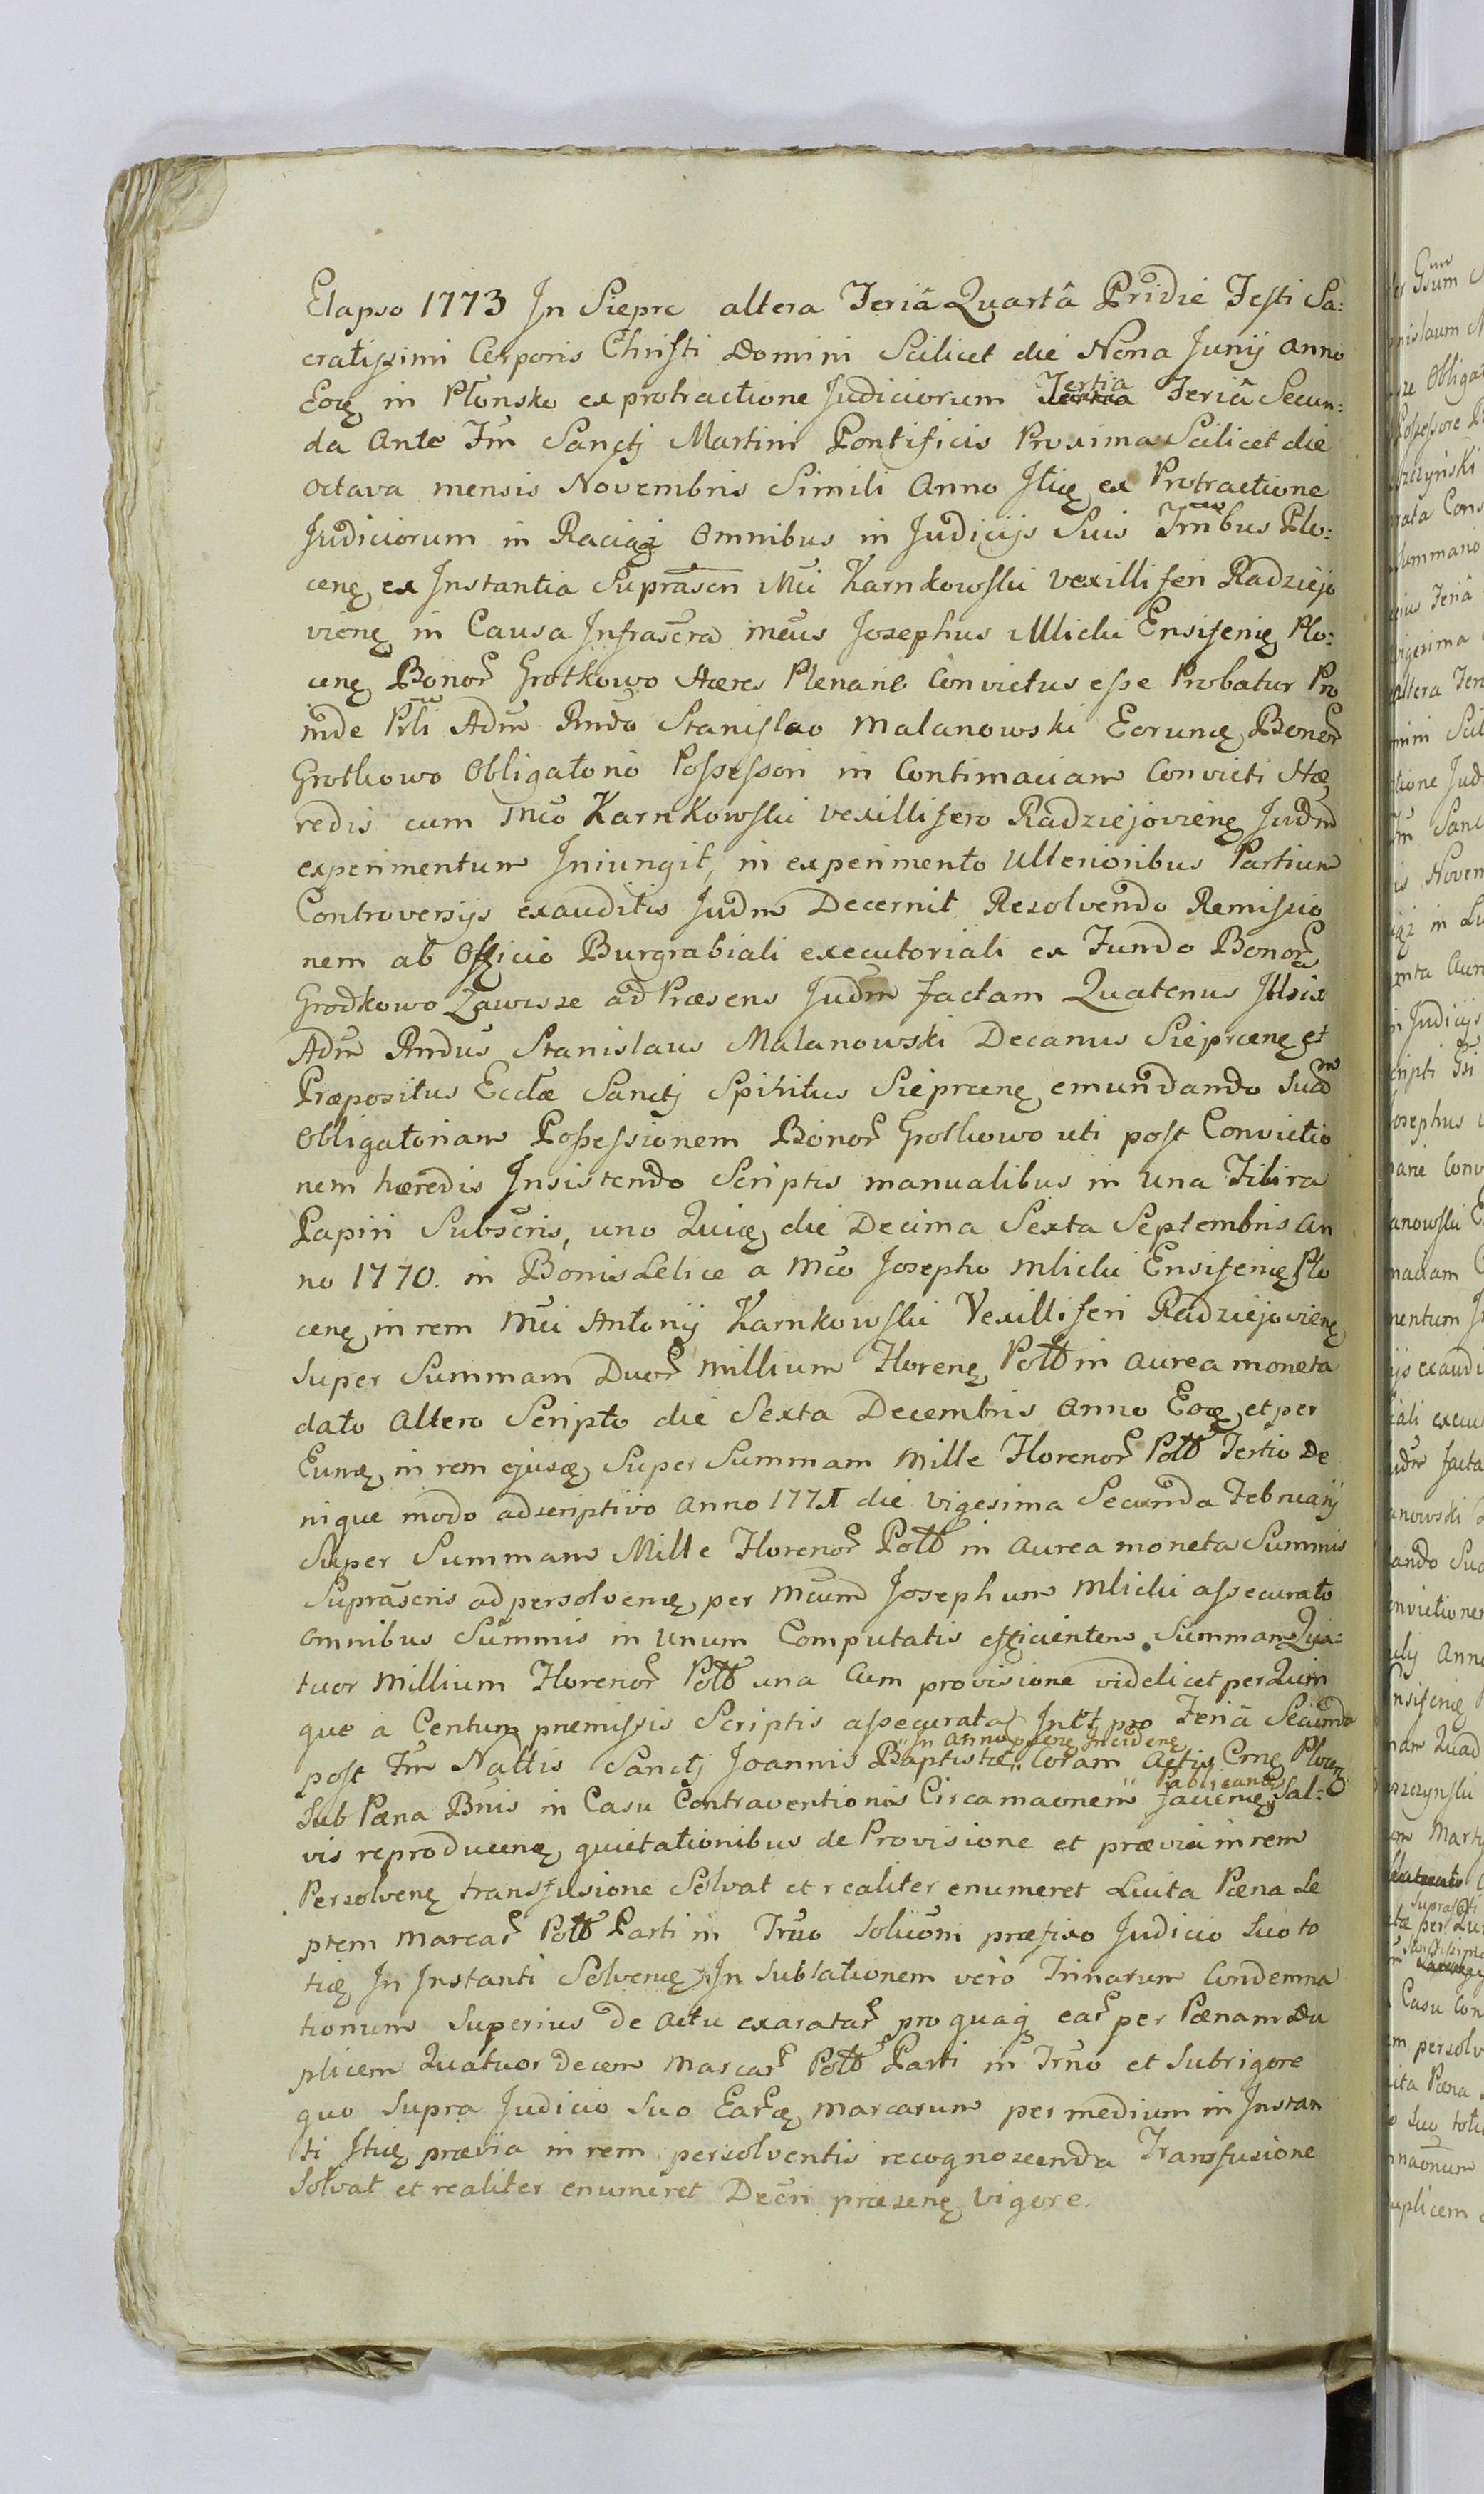 Elapso 1773 In Sieprc altera Feriâ Quartâ Pridie Festi Sa:
cratissimi Corporis Christi Domini Scilicet die Nona Junij anno
Eoq̨ in Płonsko ex protractione Judiciorum Tertia Feriâ Secun:
da Ante Fm̃ Sanctj Martini Pontificis Proxima Scilicet die
octava mensis Novembris Simili Anno Itiq̨ ex Protractione
Judiciorum in Raciąż omnibus in Judicijs Suis Trñibus Plo:
cenę ex Instantia Suprãscri Mc̃i Karnkowski vexilliferi Radziejo
vienę in Causa Infrascra mc̃us Josephus Mlicki Ensiferię Plo:
cenę Bonor̃ Grotkowo Hæres Plenarie Convictus esse Probatur Pro
inde Pñli Adm̃ Rñdo Stanislao Malanowski Eorumq̨ Bonor̃
Grotkowo Obligatorio Possessori in Contimaciam Convicti Hæ
redis cum mc̃o Karnkowski vexillifero Radziejovienę Judm̃
experimentum Iniungit, in experimento Ulterioribus Partium
Controversijs exauditis Judm̃ Decernit Resolvendo Remissio
nem ab Officio Burgrabiali executoriali ex Fundo Bonor̃
Grodkowo Zawisze ad Præsens Judm̃ factam Quatenus
Adm̃ Rndus Stanislaus Malanowski Decanus Sieprcenę et
Præpositus Ecclæ Sanctj Spiritus Sieprcenę emundando Suam
Obligatoriam Possessionem Bonor̃ Grotkowo uti post Convictio
nem hæredis Insistendo Scriptis manualibus in una Filira
Papiri Subscris, uno Quiq̨ die Decima Sexta Septembris An
no 1770. in Bonis Lelice a Mc̃o Josepho Mlicki Ensiferię Plo
cenę in rem Mc̃i Antonij Karnkowski Vexilliferi Radziejovienę
Super Summam Duor̃ Millium Florenę Poltt in aurea moneta
dato Altero Scripto die Sexta Decembris Anno Eoq̨ et per
Eumq̨ in rem ejusq̨ Super Summam Mille Florenor̃ Poltt Tertio De
nique modo adscriptivo Anno 1771 die Vigesima Secunda Februarij
Super Summam Mille Florenor̃ Poltt in aurea moneta Summis
Suprãscris ad persolvenę per Mc̃um Josephum Mlicki assecurato
omnibus Summis in Unum Computatis efficientem Summam Qua:
tuor Millium Florenor̃ Poltt una Cum provisione videlicet per Quin
que a Centum præmissis Scriptis assecurata pro Feriâ Secunda
post Fm̃ Nattis Sanctj Joannis Baptistæ "In Anno præsenę Incidenę" Coram Actis Cm̃ę Plocenę
Sub Pæna Bñis in Casu Contraventionis Circa mac̃nem Publicanda" facienę, Sal:
vis reproducenę quietationibus de Provisione et prævia in rem
Persolvenę transfusione Solvat et realiter enumeret Luita Pæna Se
ptem marcar̃ Poltt Parti in Trño Soluc̃ni præfixo Judicio Suo to
tiq̨ In Instanti Solvenę In Sublationem verò Trinarum Condemna
tionum Superius de Actu exaratar̃ pro quaq̨ ear̃ per Pænam Du
plicem Quatuor decem Marcar̃ Poltt Parti in Trño et Subrigore
quo Supra Judicio Suo Ear̃q̨ Marcarum per medium in Instan
ti Itiq̨ prævia in rem persolventis recognoscenda Transfusione
Solvat et realiter enumeret Decri præsenę Vigore.